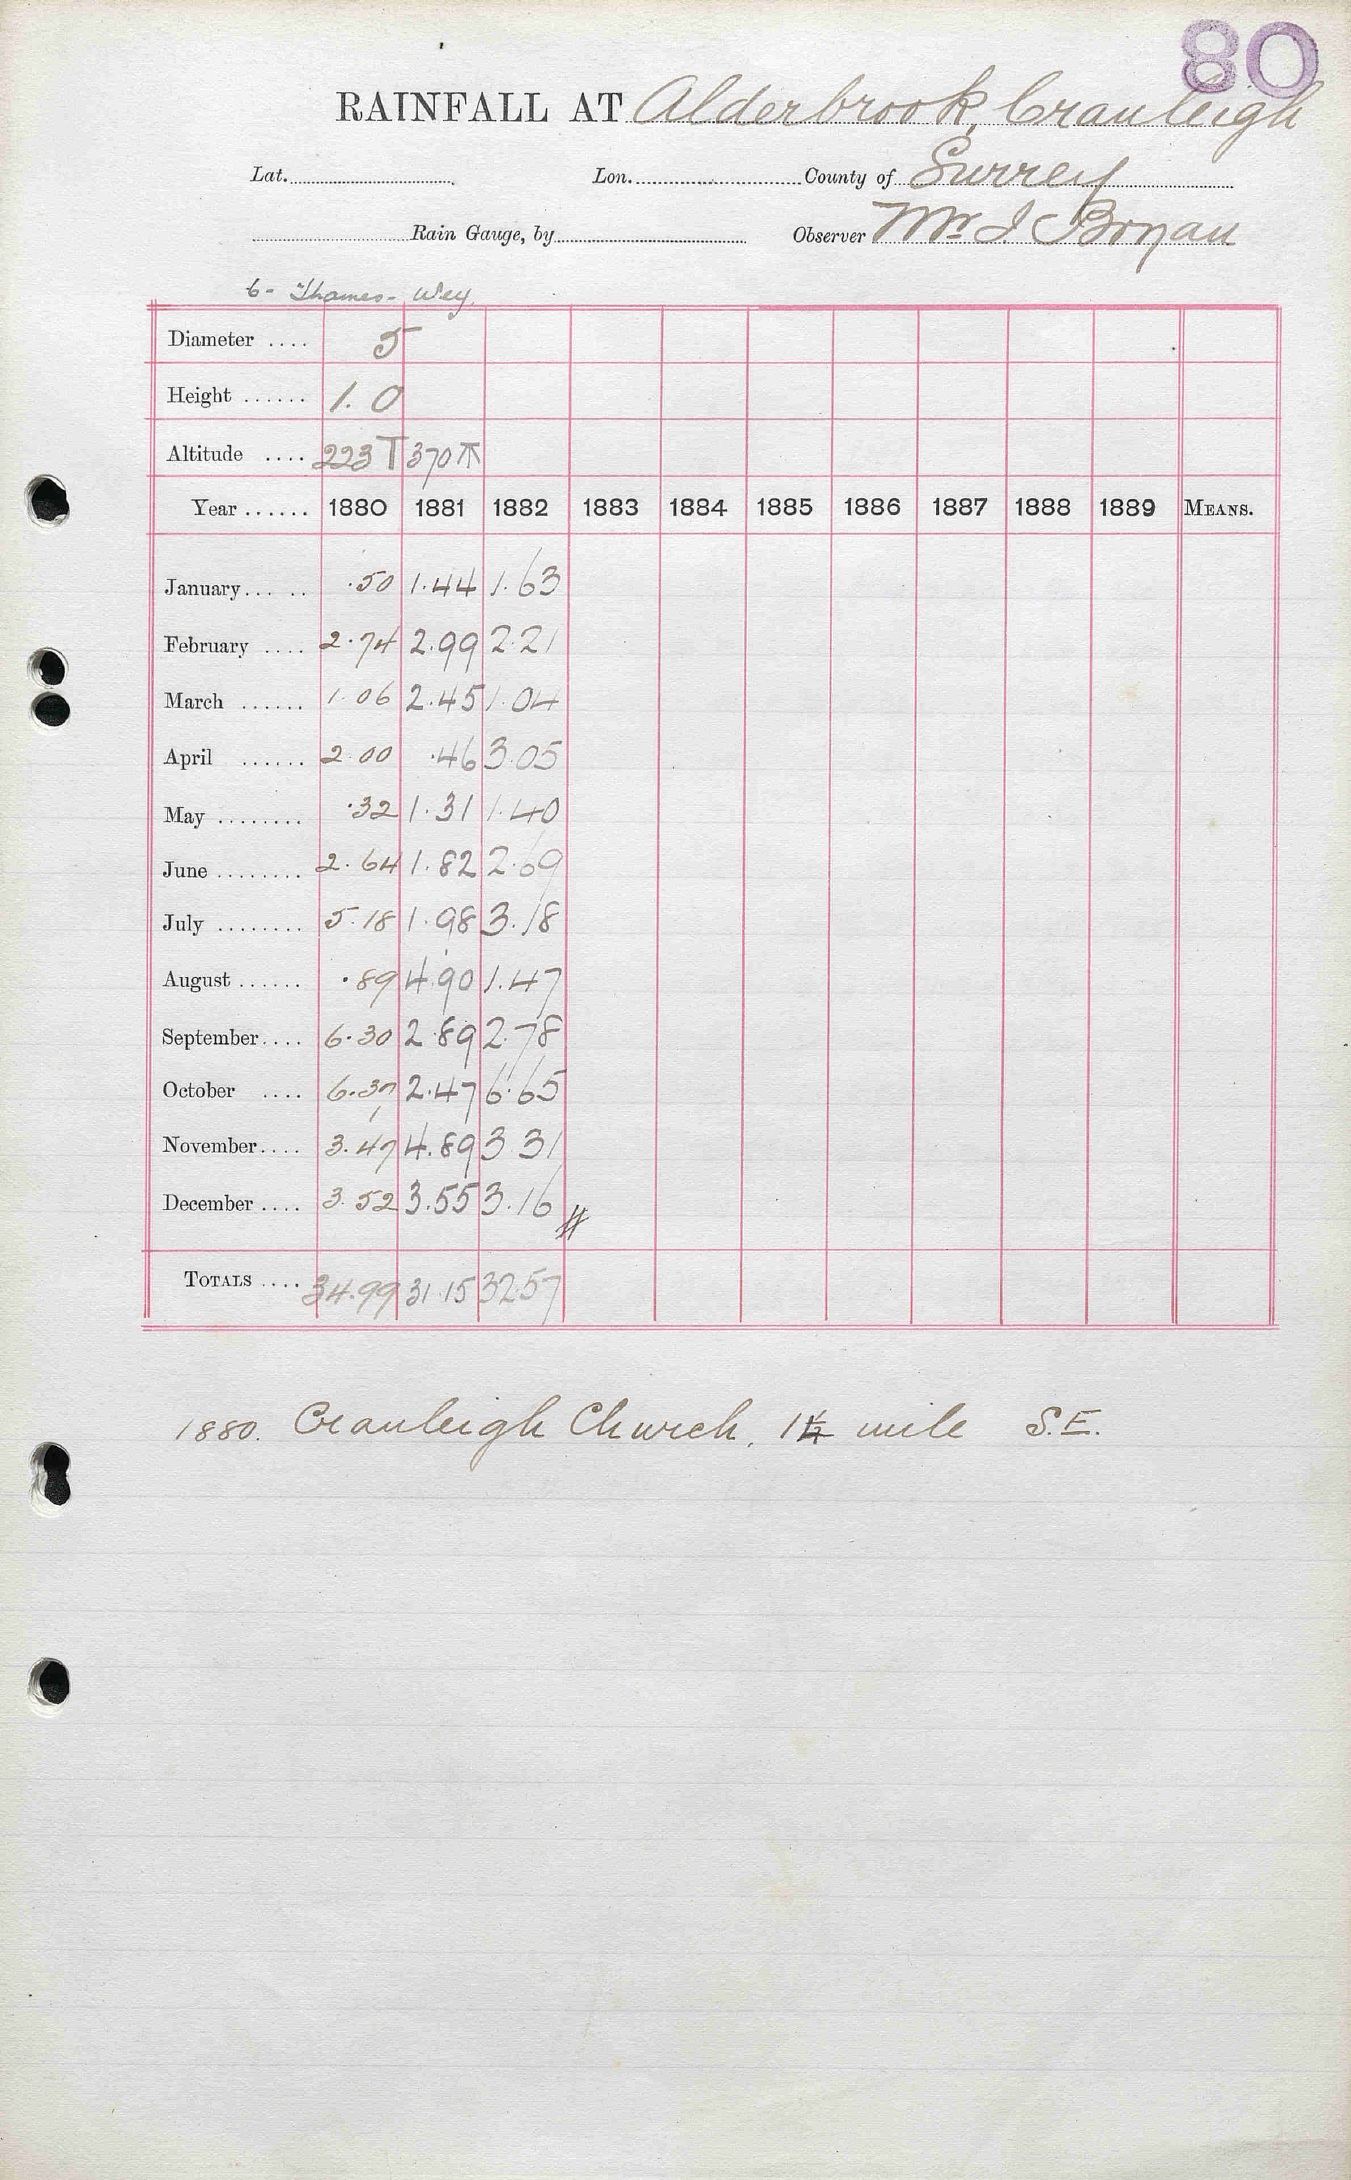 80
RAINFALL AT Alderbrook, Cranleigh
Lat. Lon. County of Surrey
Rain Gauge, by Observer Mr J. Bryan
6- Thames- Wey.
Diameter .... 5
Height ...... 1.0
Altitude .... 223 T 370
Year ...... 1880 1881 1882 1883 1884 1885 1886 1887 1888 1889 MEANS.
January ... .. .50 1.44 1.63
February .... 2.74 2.99 2.21
March ...... 1.06 2.45 1.04
April ...... 2.00 .46 3.05
May ........ .32 1.31 1.40
June ........ 2.64 1.82 2.69
July ........ 5.18 1.98 3.18
August ...... .89 4.90 1.47
September .... 6.30 2.89 2.78
October .... 6.37 2.47 6.65
November .... 3.47 4.89 3.31
December .... 3.52 3.55 3.16
TOTALS .... 34.99 31.15 32.57
1880. Cranleigh Church, 1¼ mile S.E.